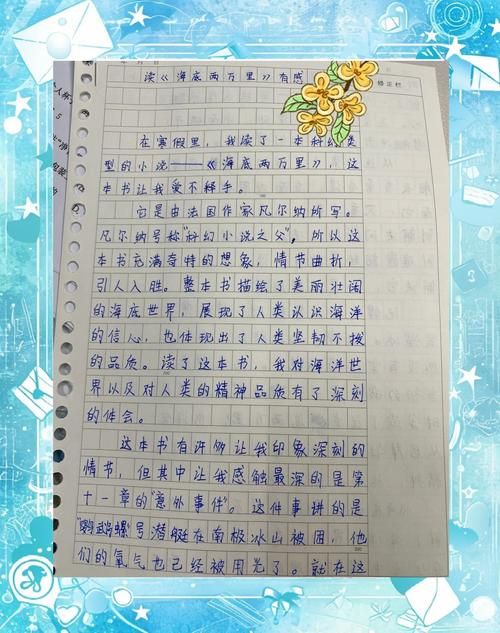 读《海底两万里》有感
修正栏
在寒假里，我读了一本科幻类
型的小说——《海底两万里》，这
本书让我爱不释手。
它是由法国作家凡尔纳所写。
凡尔纳号称“科幻小说之父”。所以这
本书充满奇特的想象，情节曲折，
引人入胜。整本书描绘了美丽壮阔
的海底世界，展现了人类认识海洋
的信心，也体现出了人类坚韧不拔
的品质。读了这本书，我对海洋世
界以及对人类的精神品质有了深刻
的体会。
这本书有许够让我印象深刻的
情节，但其中让我感触最深的是第
十一章的“意外事件”。这件事讲的是
“鹦鹉螺”号潜艇在南极冰山被困，他
们的氧气也已经被用光了。就在这